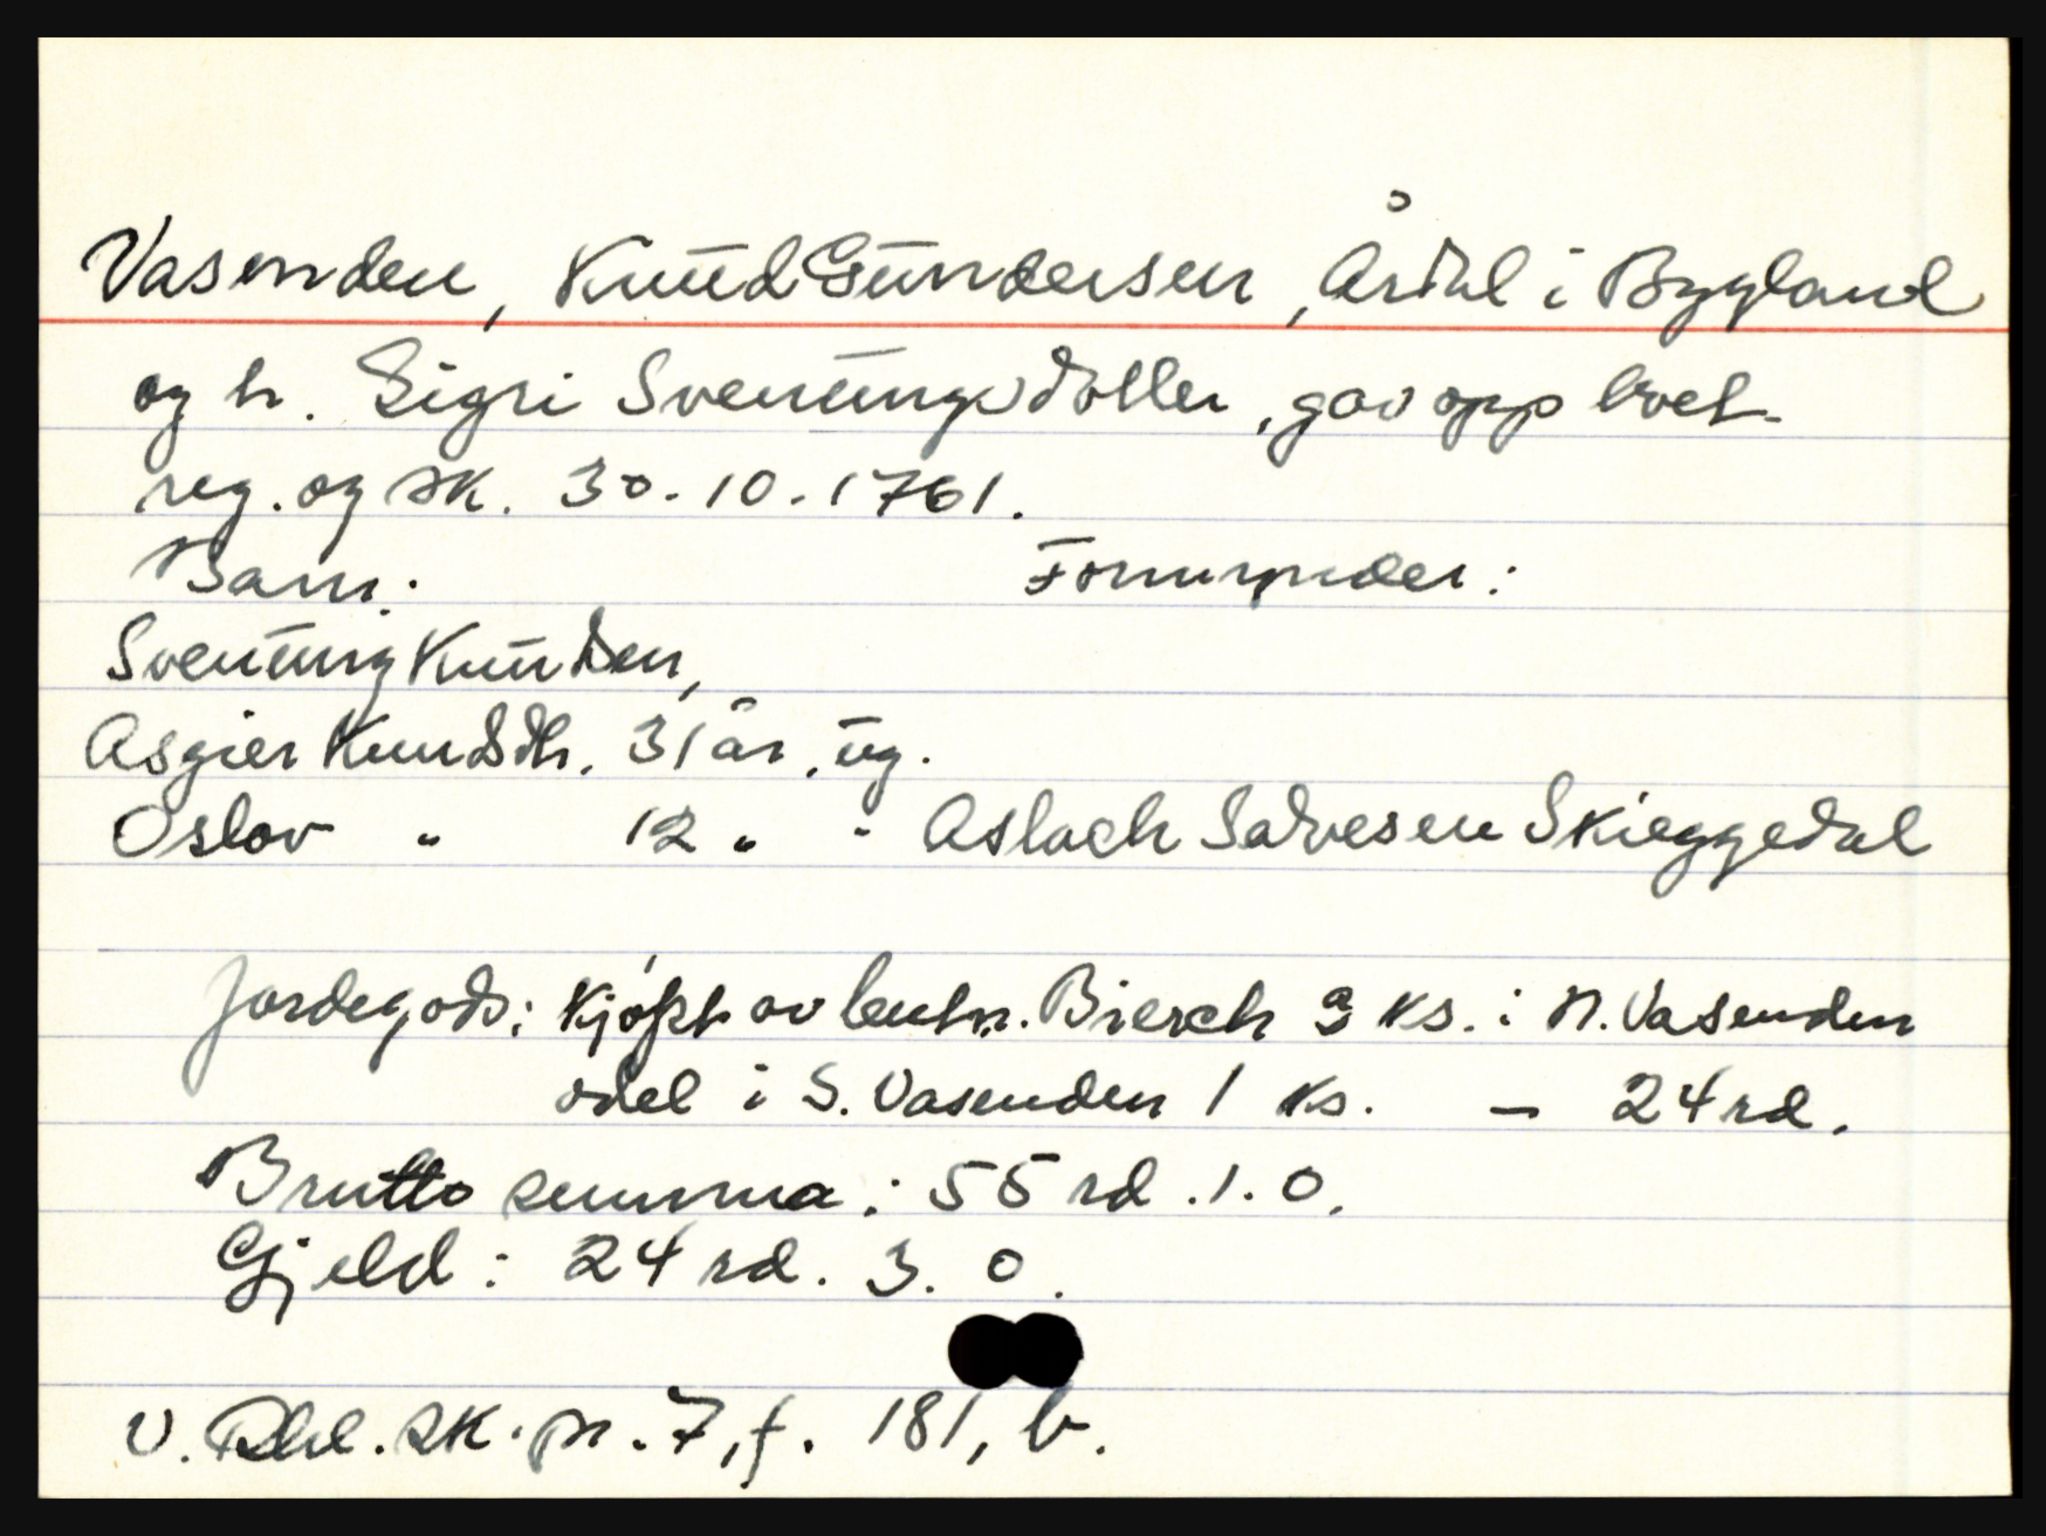 Vasenden, Knud Gundersen, Årdal i Bygland
og h. Sigri Svenungsdotter, gav opp boet
reg. og sk. 30.10.1761.
Barn: Formynder:
Svenung Knudsen,
Asgier Knudsdtr. 31 år, ug.
Oslov " 12 " - Aslach Salvesen Skieggedal
Jordegods: Kjøpt av leutn. Bierch 3 ks. i N. Vasenden
odel i S. Vasenden 1 ks. — 24 rd.
Brutto summa: 55 rd. 1. 0.
Gjeld: 24 rd. 3. 0.
V. sk. pr. 7, f. 181, b.